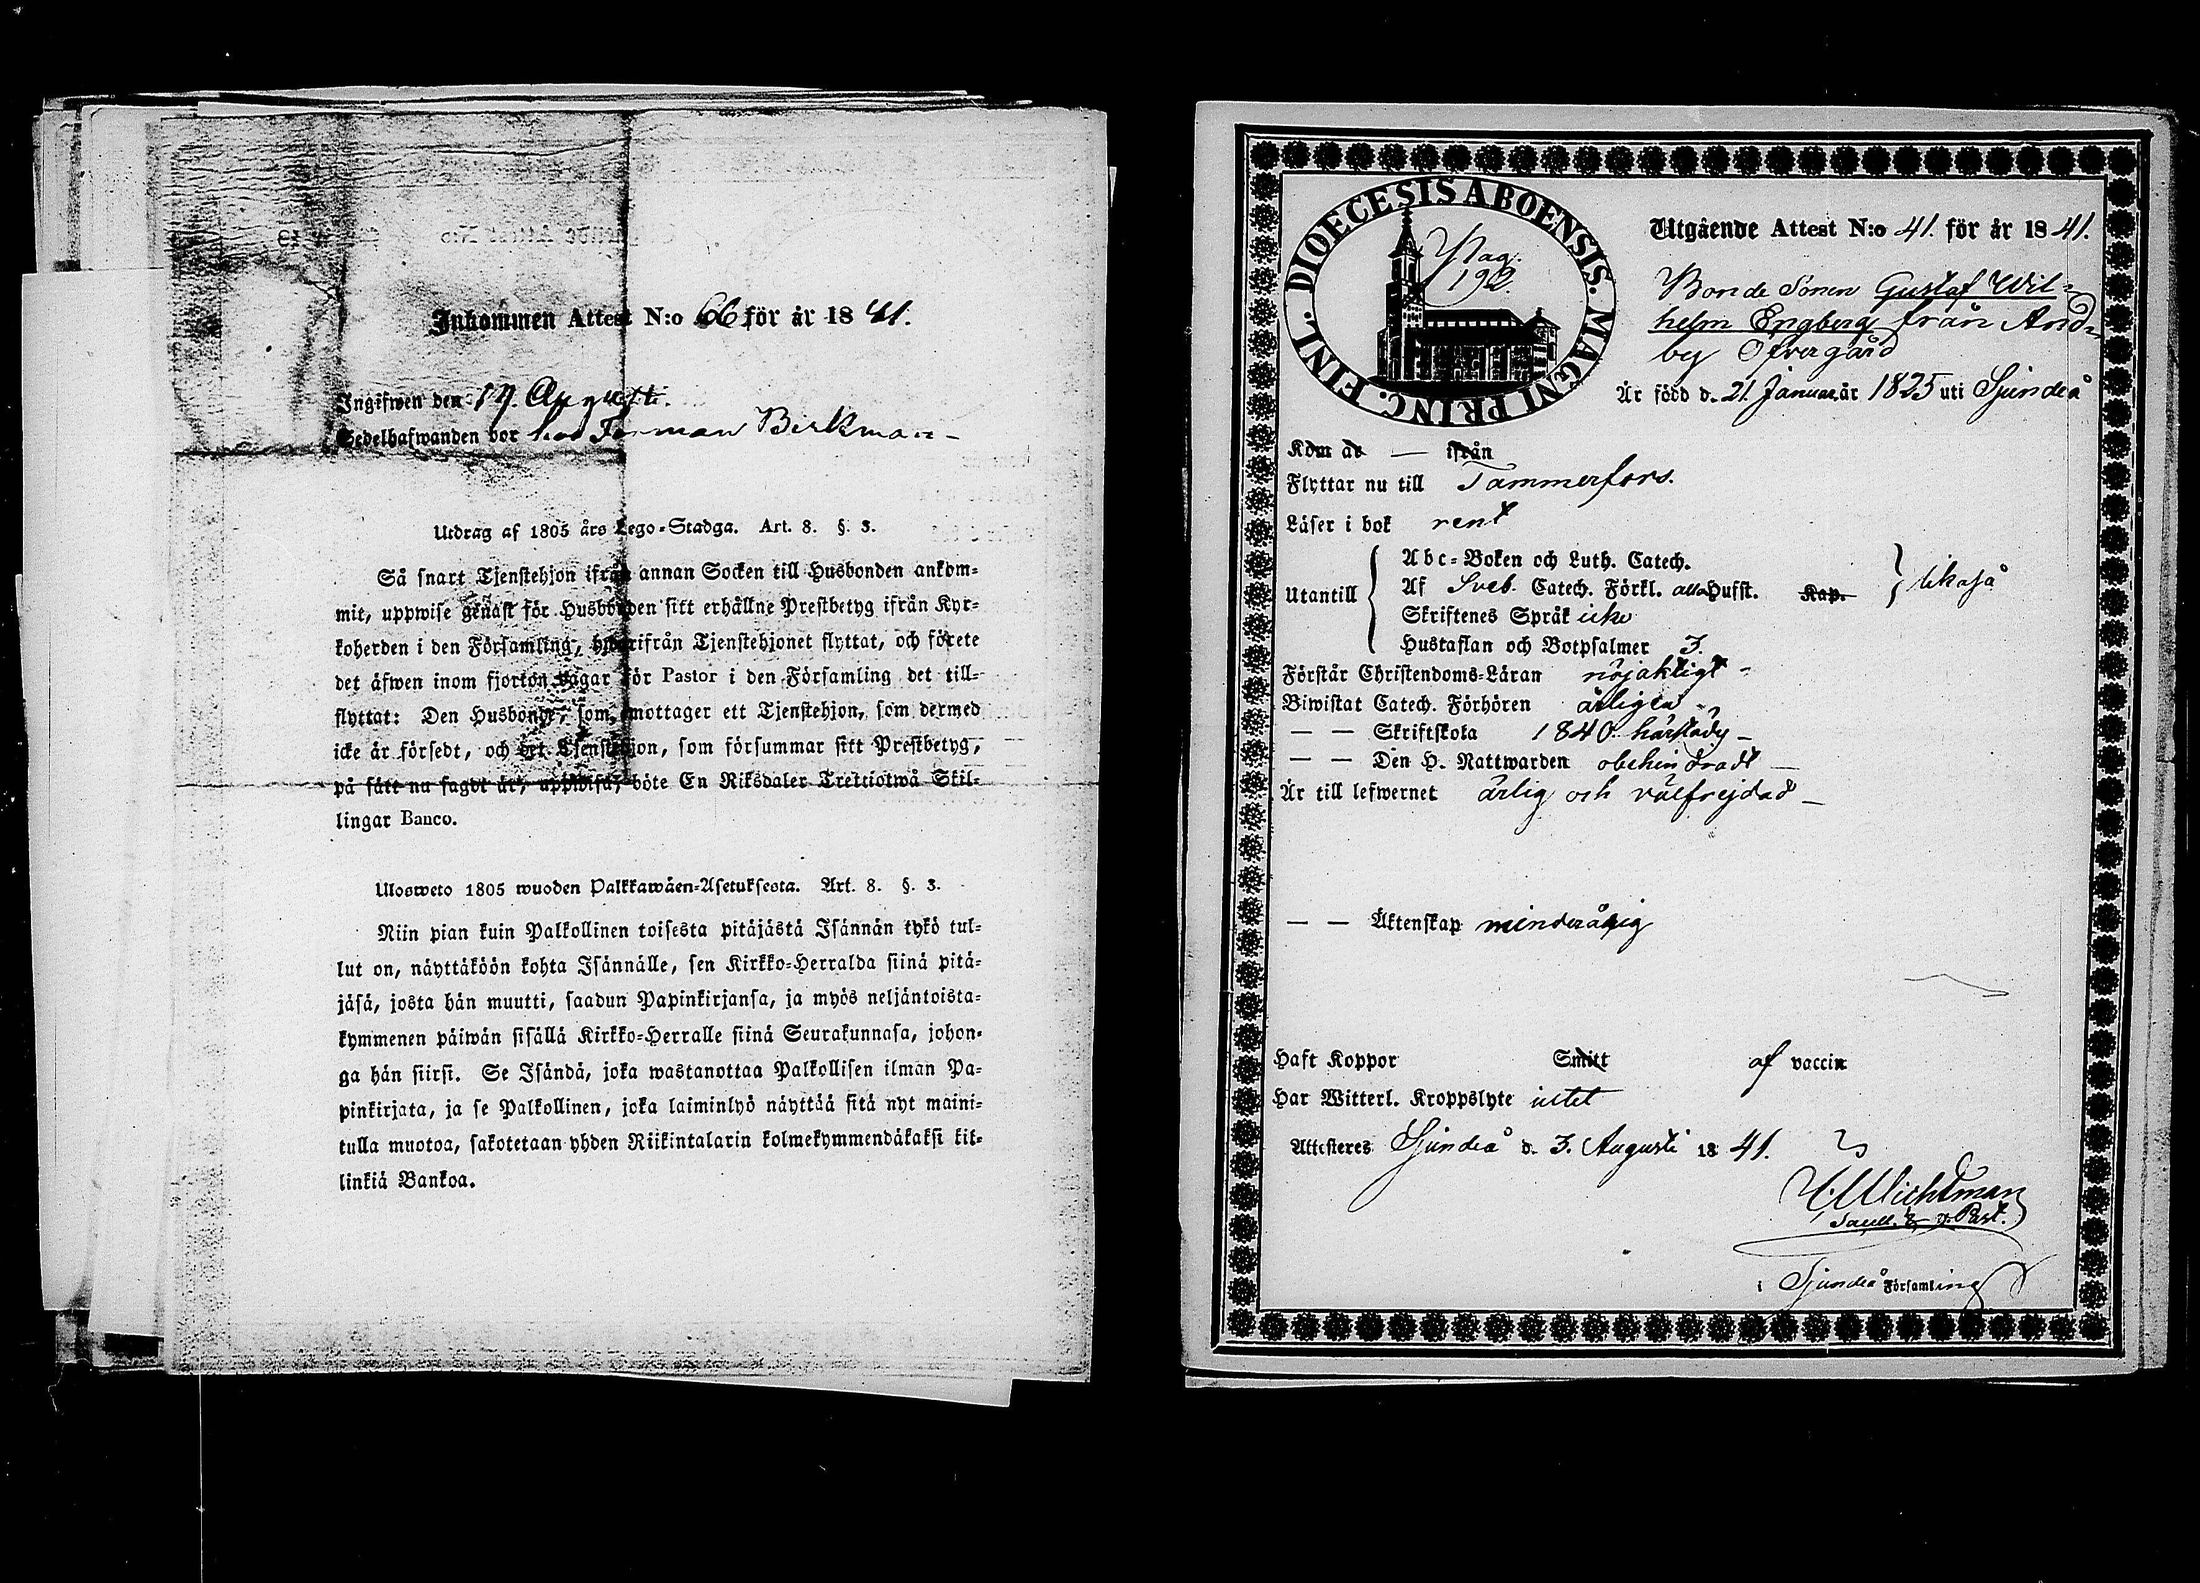 Inkommen Attest N:o 66 för år 1841.
Ingifwen den 17. Augusti.
Sedelhafwanden bor hos Forman Birkman
Utdrag af 1805 års Lego-Stadga. Art. 8. §. 3.
Så snart Tjenstehjon ifrån annan Socken till Husbonden ankom-
mit, uppwise genast för Husbonden sitt erhållne Prestbetyg ifrån Kyr-
koherden i den Församling, hwarifrån Tjenstehjonet flyttat, och förete
det äfwen inom fjorton dagar för Pastor i den Församling det till-
flyttat: Den Husbonde, som emottager ett Tjenstehjon, som dermed
icke är försedt, och det Tjenstehjon, som försummar sitt Prestbetyg,
på sätt nu sagdt är, uppwisa, böte En Riksdaler Trettiotwå Skil-
lingar Banco.
Ulosweto 1805 wuoden Palkkawäen-Asetuksesta. Art. 8. §. 3.
Niin pian kuin Palkollinen toisesta pitäjästä Isännän tykö tul-
lut on, näyttäköön kohta Isännälle, sen Kirkko-Herralda siinä pitä-
jäsä, josta hän muutti, saadun Papinkirjansa, ja myös neljäntoista-
kymmenen päiwän sisällä Kirkko-Herralle siinä Seurakunnasa, johon-
ga hän siirsi. Se Isändä, joka wastanottaa Palkollisen ilman Pa-
pinkirjata, ja se Palkollinen, joka laiminlyö näyttää sitä nyt maini-
tulla muotoa, sakotetaan yhden Riikintalarin kolmekymmendäkaksi kil-
linkiä Bankoa.
DIOECESIS ABOENSIS. MAGNI PRINC. FINL.
Pag.
192.
Utgående Attest N:o 41. för år 1841.
Bonde Sonen Gustaf Wil-
helm Engberg från And-
by Öfvergård
Är född d. 21. Januar. år 1825 uti Sjundeå
Kom ad — ifrån
Flyttar nu till Tammerfors.
Läser i bok rent
Utantill
Abc-Boken och Luth. Catech.
Af Sveb. Catech. Förkl. alla Hufst. Kap.
Skriftenes Språk icke
Hustaflan och Botpsalmer 3.
likaså
Förstår Christendoms-Läran nöjaktigt -
Biwistat Catech. Förhören årligen -
— — Skriftskola 1840. härstädes -
— — Den H. Nattwarden obehindradt —
Är till lefwernet ärlig och välfrejdad —
— — Äktenskap minderårig
Haft Koppor Smitt af vaccin
Har Witterl. Kroppslyte intet
Attesteres Sjundeå d. 3. Augusti 1841.
Wichtman
Past.
i Sjundeå Församling